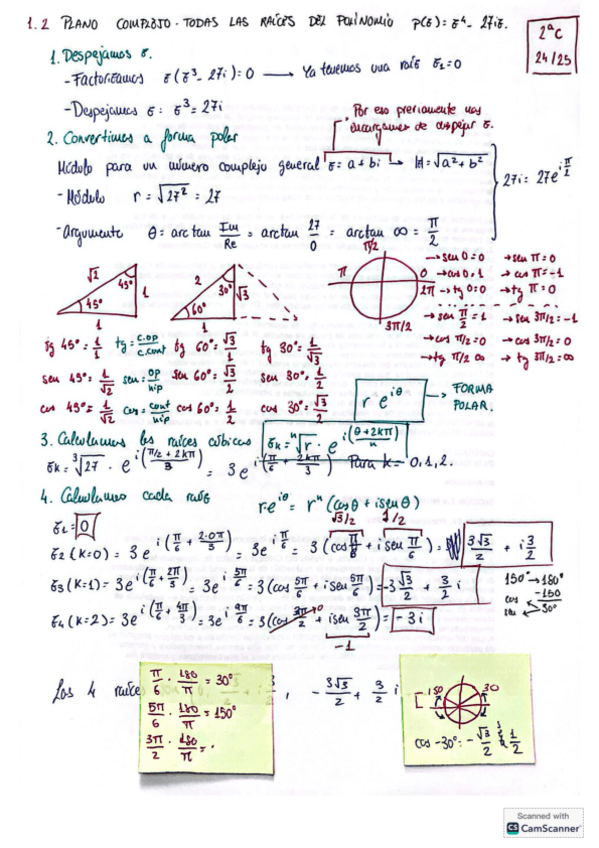 1.2 PLANO COMPLEJO. TODAS LAS RAÍCES DEL POLINOMIO p(z) = z⁴ - 27iz.
2ªC
24/25
1. Despejamos z.
- Factorizamos z(z³ - 27i) = 0 → Ya tenemos una raíz z₁ = 0
- Despejamos z: z³ = 27i
Por eso previamente nos encargamos de despejar z.
2. Convertimos a forma polar
Módulo para un número complejo general z = a + bi → |z| = √(a² + b²)
- Módulo r = √27² = 27
27i = 27e^(i π/2)
- Argumento θ = arctan Im/Re = arctan 27/0 = arctan ∞ = π/2
π/2
π
0
2π
3π/2
→ sen 0 = 0 → sen π = 0
→ cos 0 = 1 → cos π = -1
→ tg 0 = 0 → tg π = 0
→ sen π/2 = 1 → sen 3π/2 = -1
→ cos π/2 = 0 → cos 3π/2 = 0
→ tg π/2 ∞ → tg 3π/2 = ∞
√2 45° 1 45° 1
2 30° √3 60° 1
tg 45° = 1/1 tg = c.op/c.cont tg 60° = √3/1 tg 30° = 1/√3
sen 45° = 1/√2 sen = op/hip sen 60° = √3/2 sen 30° = 1/2
cos 45° = 1/√2 cos = cont/hip cos 60° = 1/2 cos 30° = √3/2
r e^(iθ) → FORMA POLAR.
3. Calculamos las raíces cúbicas zₖ = ⁿ√r · e^(i(θ+2kπ)/n)
zₖ = ³√27 · e^(i(π/2 + 2kπ)/3) = 3e^(i(π/6 + 2kπ/3)) Para k = 0, 1, 2.
4. Calculamos cada raíz r·e^(iθ) = rⁿ (cos θ + i sen θ)
√3/2 1/2
z₁ = 0
z₂ (k=0) = 3e^(i(π/6 + 2·0π/3)) = 3e^(i π/6) = 3(cos π/6 + i sen π/6) = 3√3/2 + i 3/2
z₃ (k=1) = 3e^(i(π/6 + 2π/3)) = 3e^(i 5π/6) = 3(cos 5π/6 + i sen 5π/6) = -3√3/2 + 3/2 i
150° → 180°
-150
30°
cos
sen
z₄ (k=2) = 3e^(i(π/6 + 4π/3)) = 3e^(i 9π/6) = 3(cos 3π/2 + i sen 3π/2) = -3i
→0
-1
Las 4 raíces , - 3√3/2 + 3/2 i
π/6 · 180/π = 30°
5π/6 · 180/π = 150°
3π/2 · 180/π = ·
150 30
cos -30° = - √3/2 1/2
Scanned with
CS CamScanner